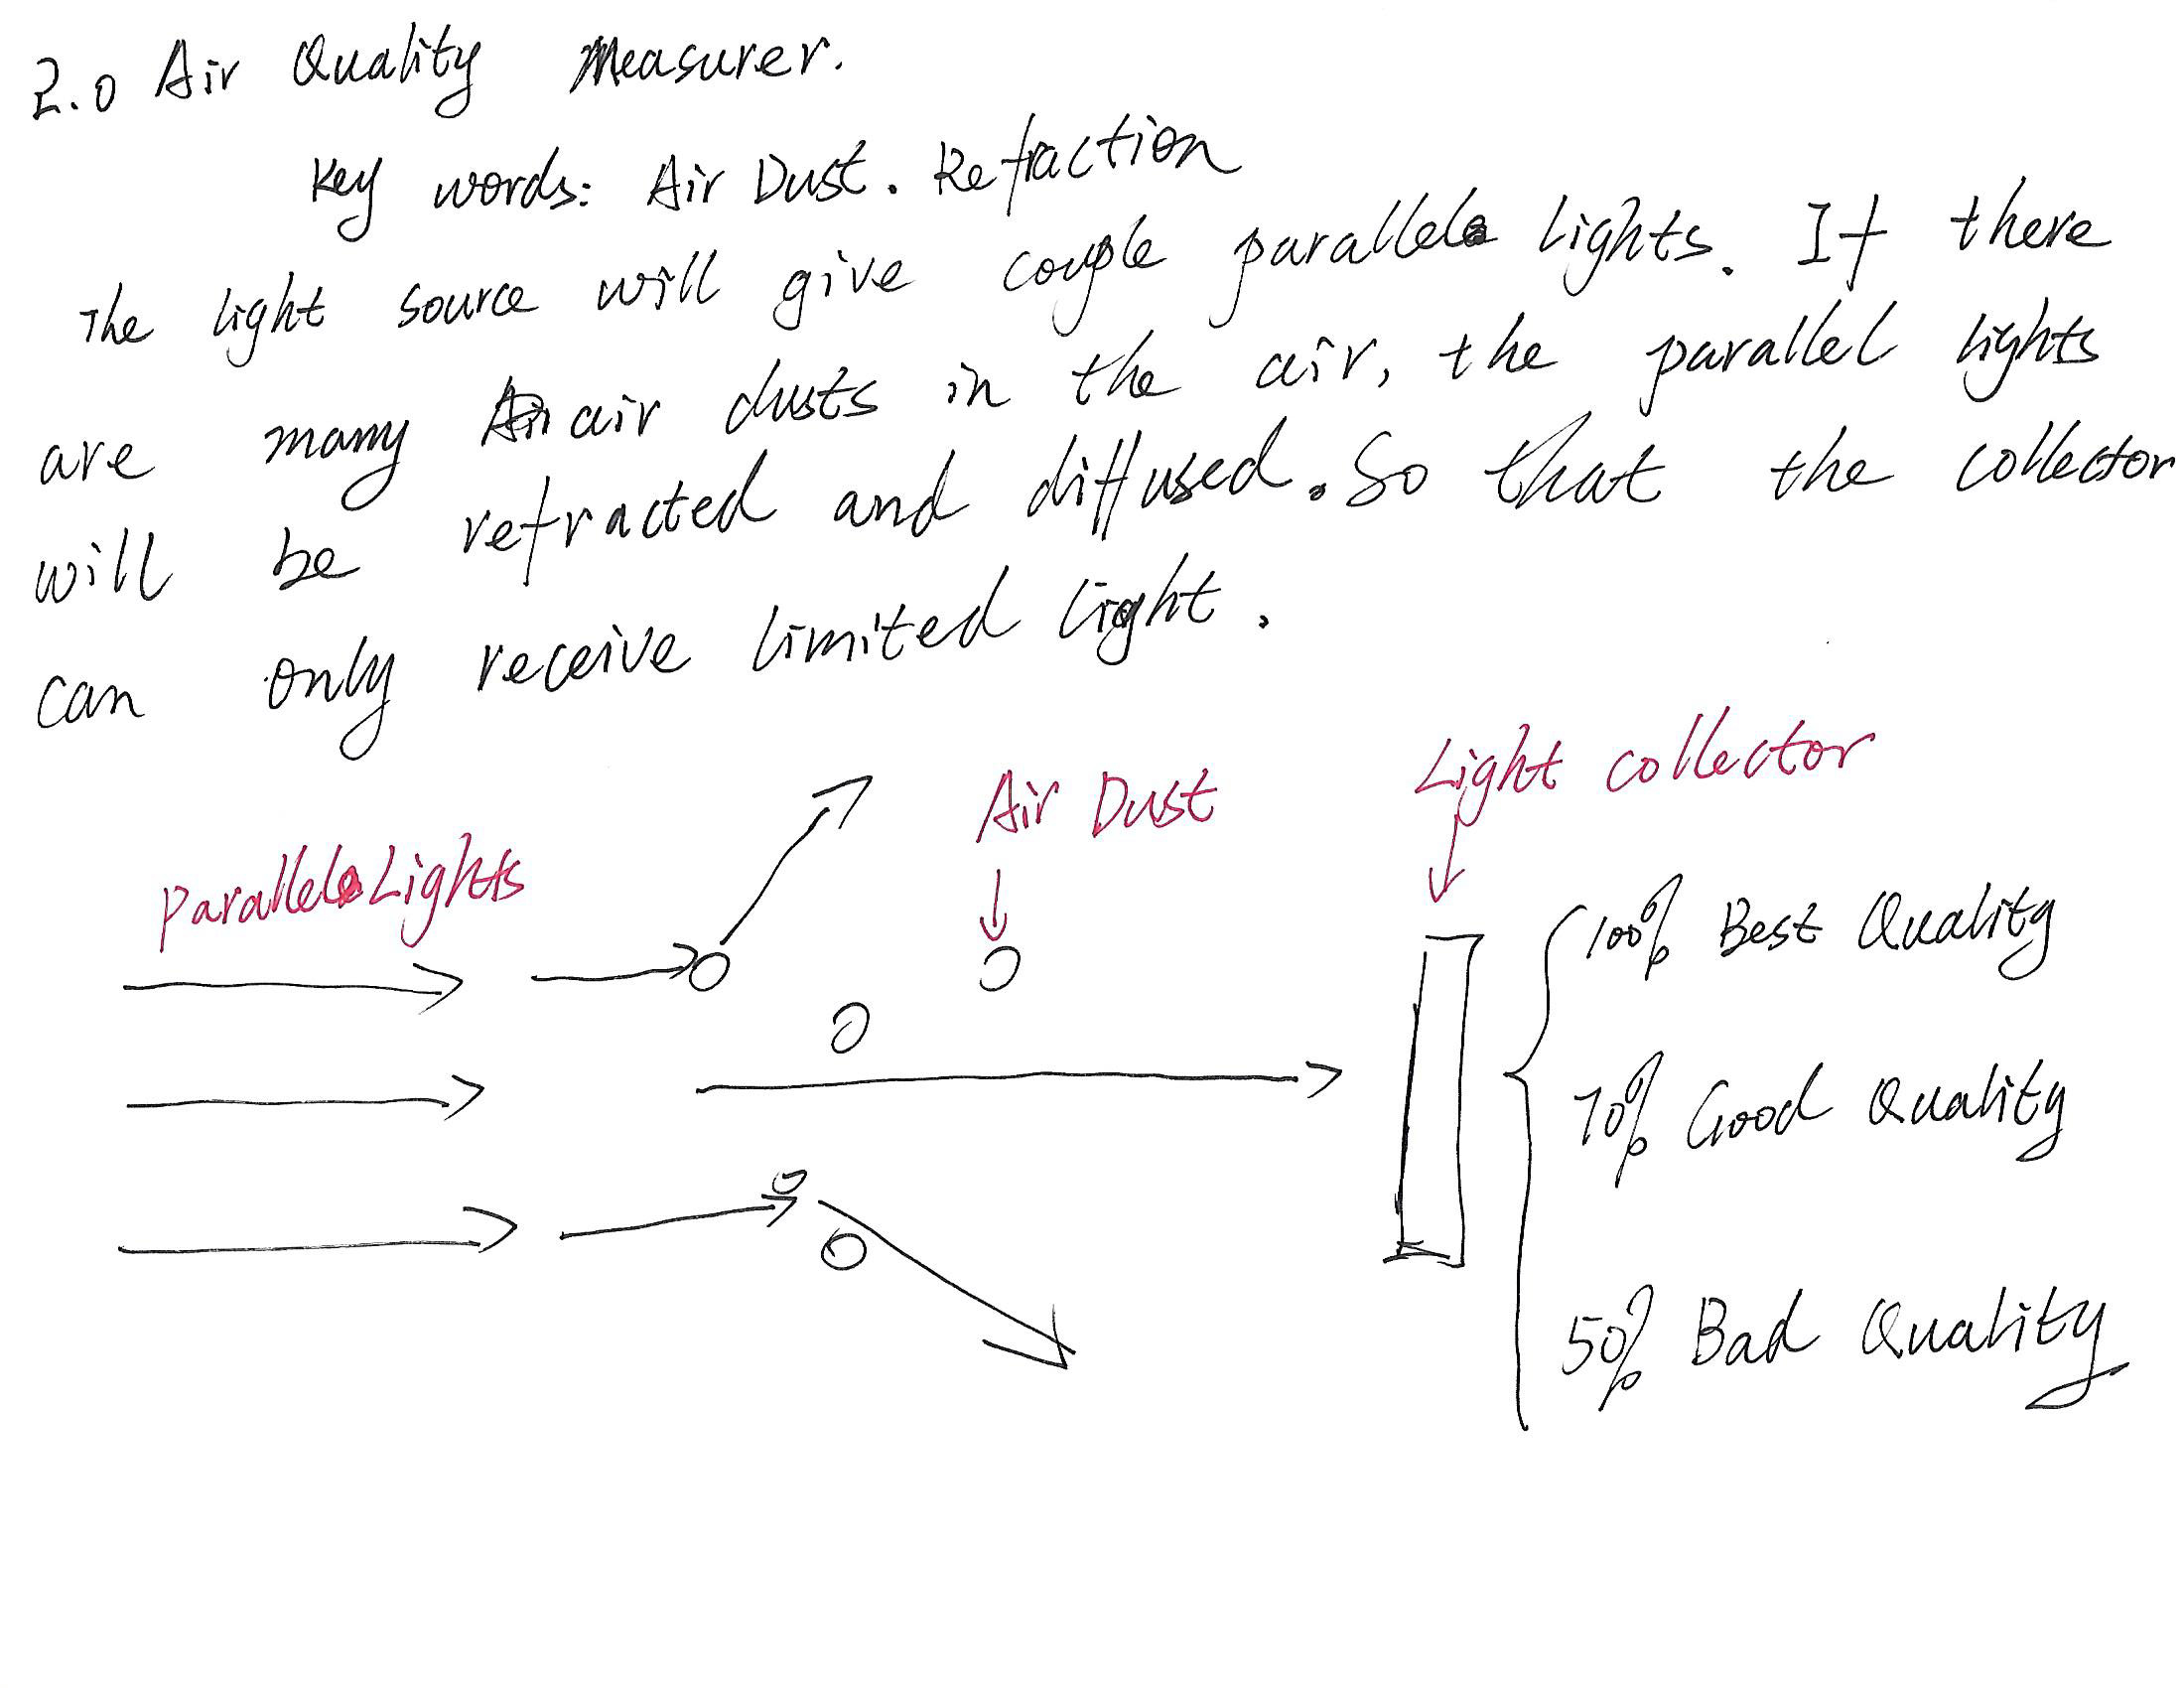 2.0 Air Quality Measurer.
Key words: Air Dust. Refraction
The light source will give couple parallel lights. If there
are many air dusts in the air, the parallel lights
will be refracted and diffused. So that the collector
can only receive limited light.
Light collector
Air Dust
Parallel Lights
100% Best Quality
70% Good Quality
50% Bad Quality